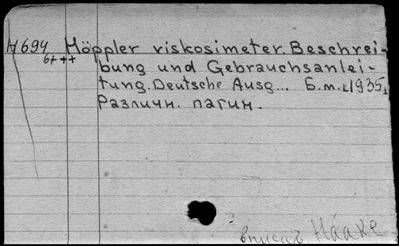 H694 Höppler viskosimeter. Beschrei-
6+++
bung und Gebrauchsanlei-
tung. Deutsche Ausg... Б.м. [1935]
Различн. пагин.
вписал Haake